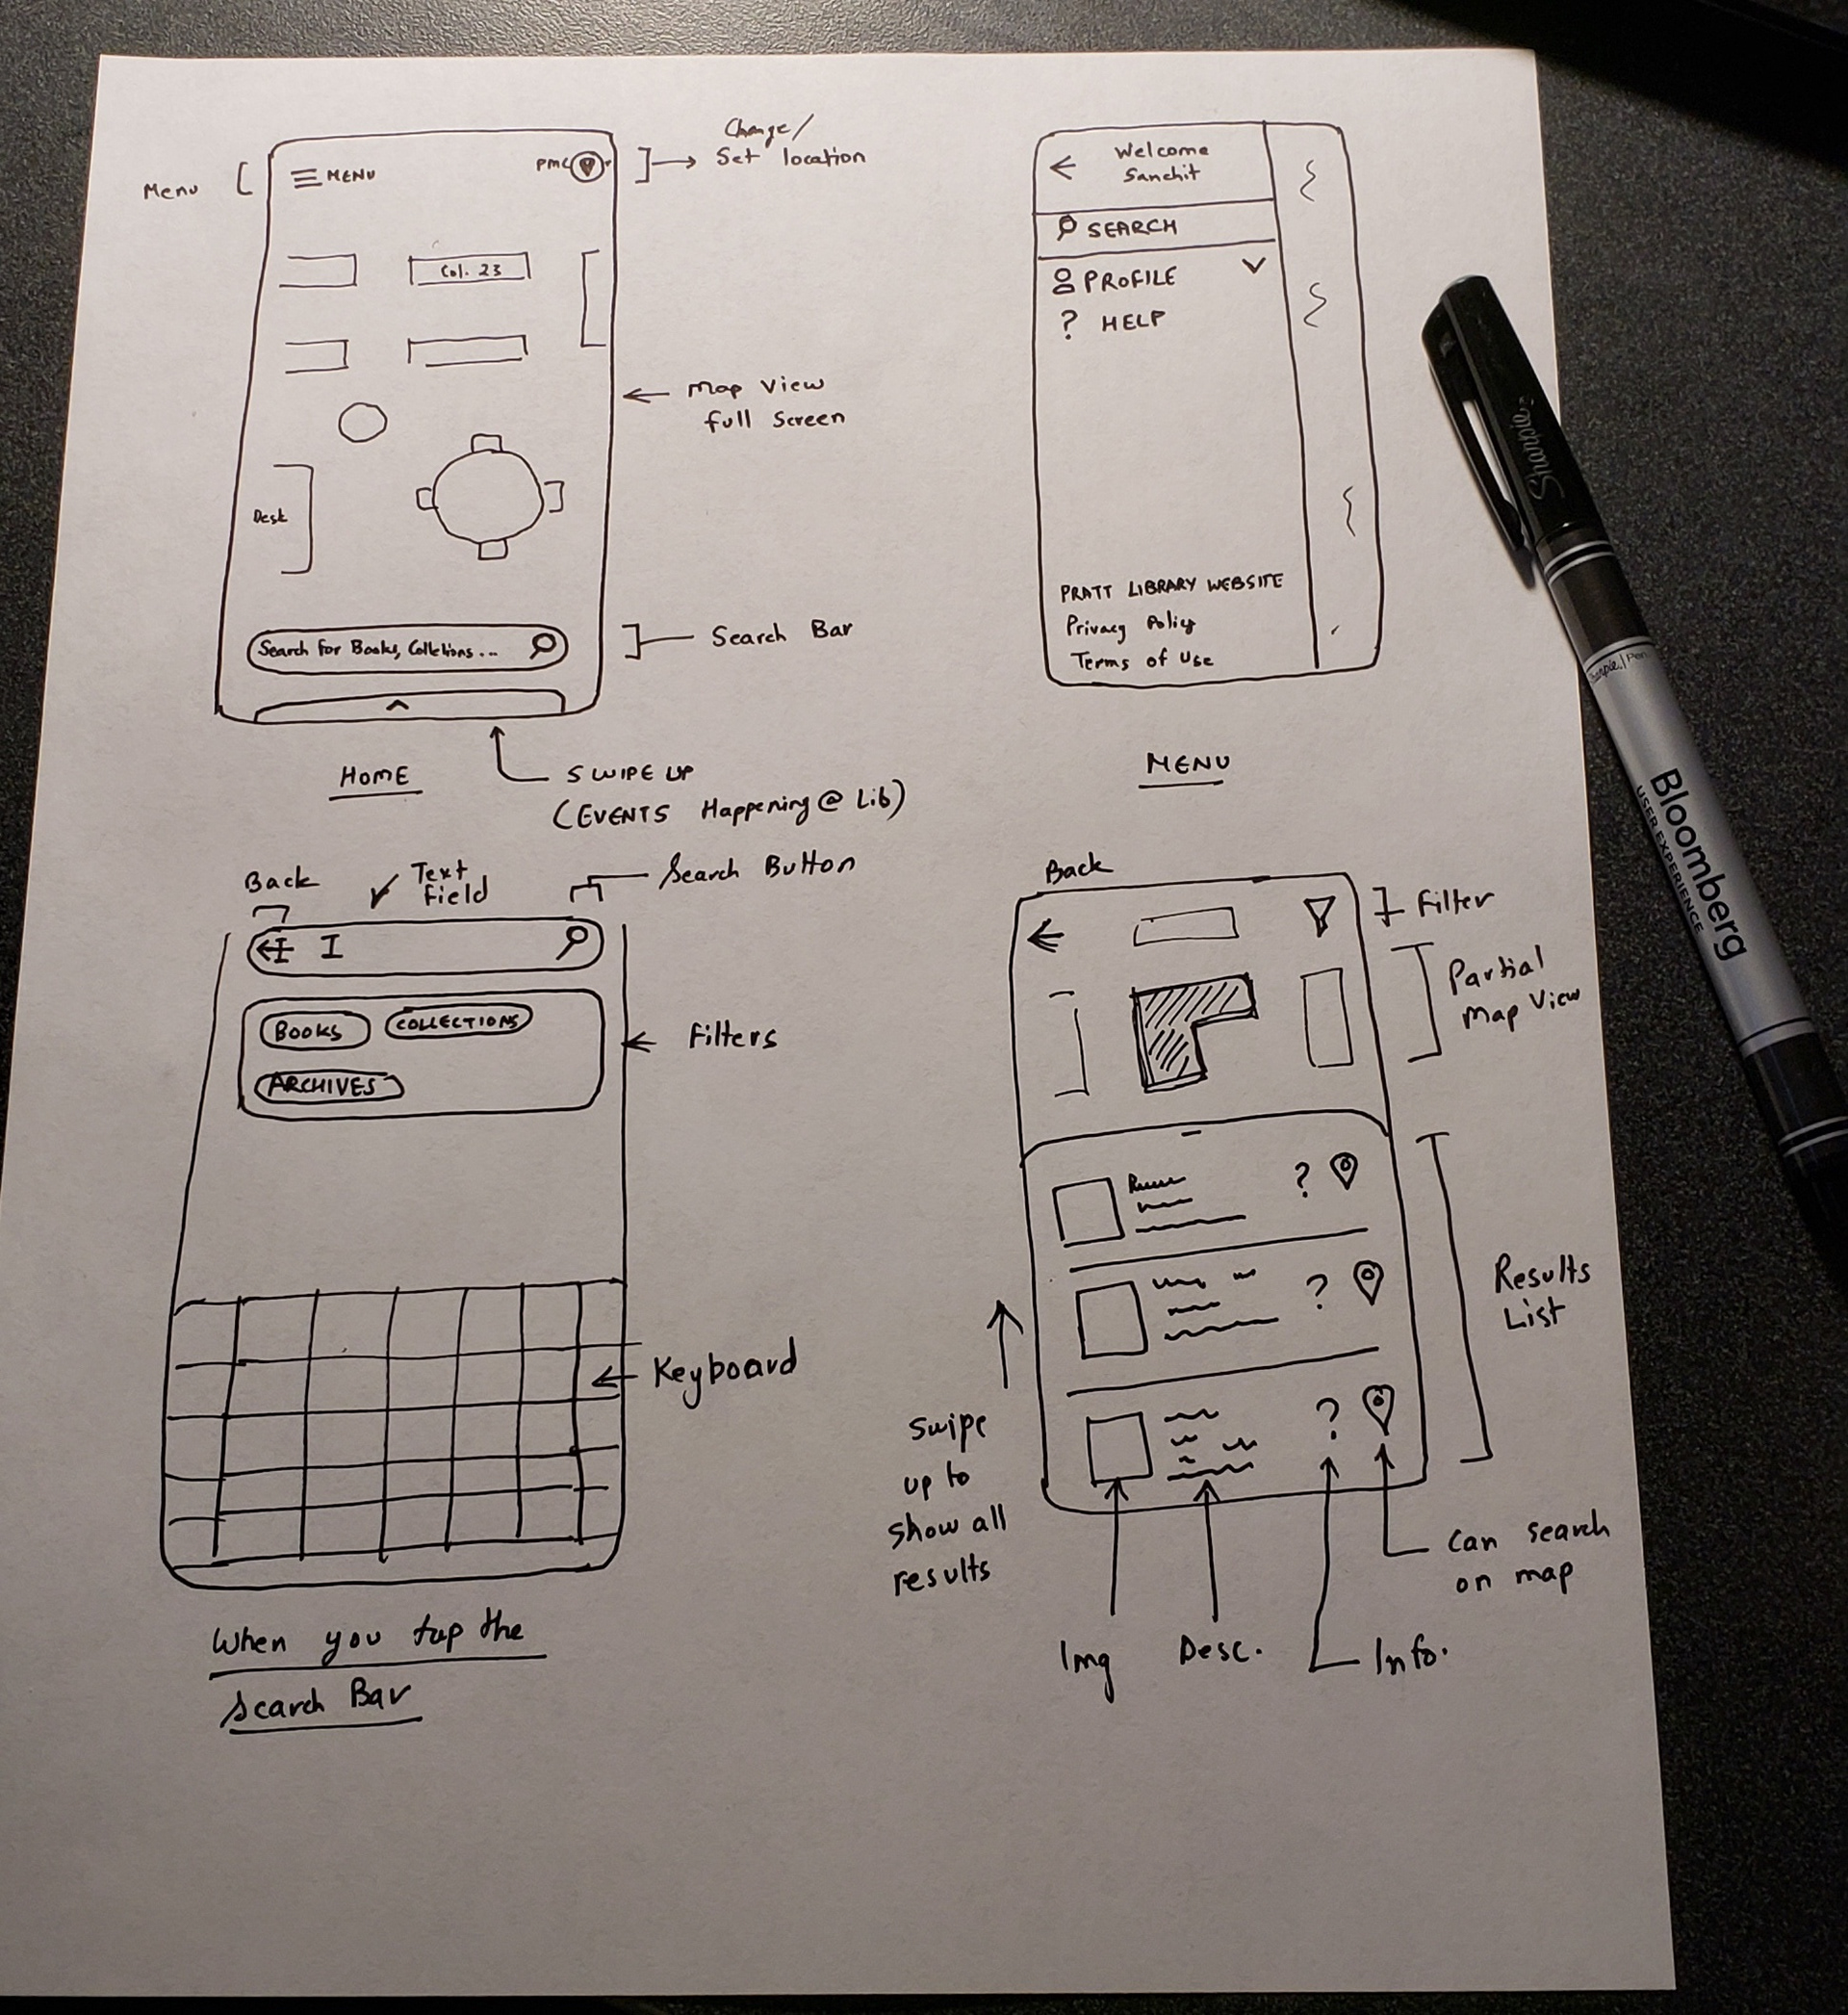 Menu
MENU
PMC
Change/
Set location
Col. 23
Map View
full Screen
Desk
Search for Books, Colletions...
Search Bar
HOME
SWIPE UP
(EVENTS Happening @ Lib)
Welcome
Sanchit
SEARCH
PROFILE
? HELP
PRATT LIBRARY WEBSITE
Privacy Policy
Terms of Use
MENU
Back
Text
field
Search Button
I
BOOKS
COLLECTIONS
ARCHIVES
Filters
Keyboard
When you tap the
Search Bar
Back
Filter
Partial
Map View
?
?
?
Results
List
Swipe
up to
show all
results
Can search
on map
Img
Desc.
Info.
Sharpie
Sharpie. Pen
Bloomberg
USER EXPERIENCE